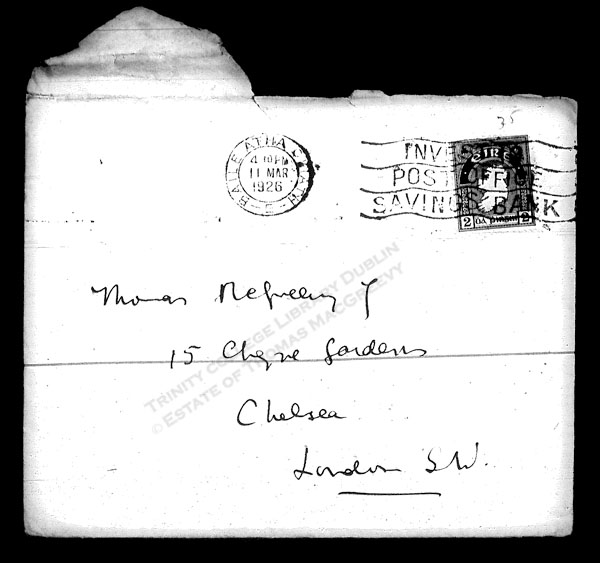 35
BAILE ÁTHA CLIATH
4.0 PM
11 MAR
1926
INVEST IN
POST OFFICE
SAVINGS BANK
EIRE
2 DÁ PINGIN 2
Thomas McGreevy
15 Cheyne Gardens
Chelsea
London S.W.
TRINITY COLLEGE LIBRARY DUBLIN
© ESTATE OF THOMAS MACGREEVY